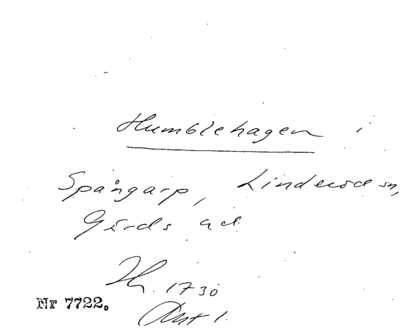 Humblehagen i
Spångarp, Linderöd sn,
Gärds hd
Hn. 1730
Nr 7722.
Akt 1.